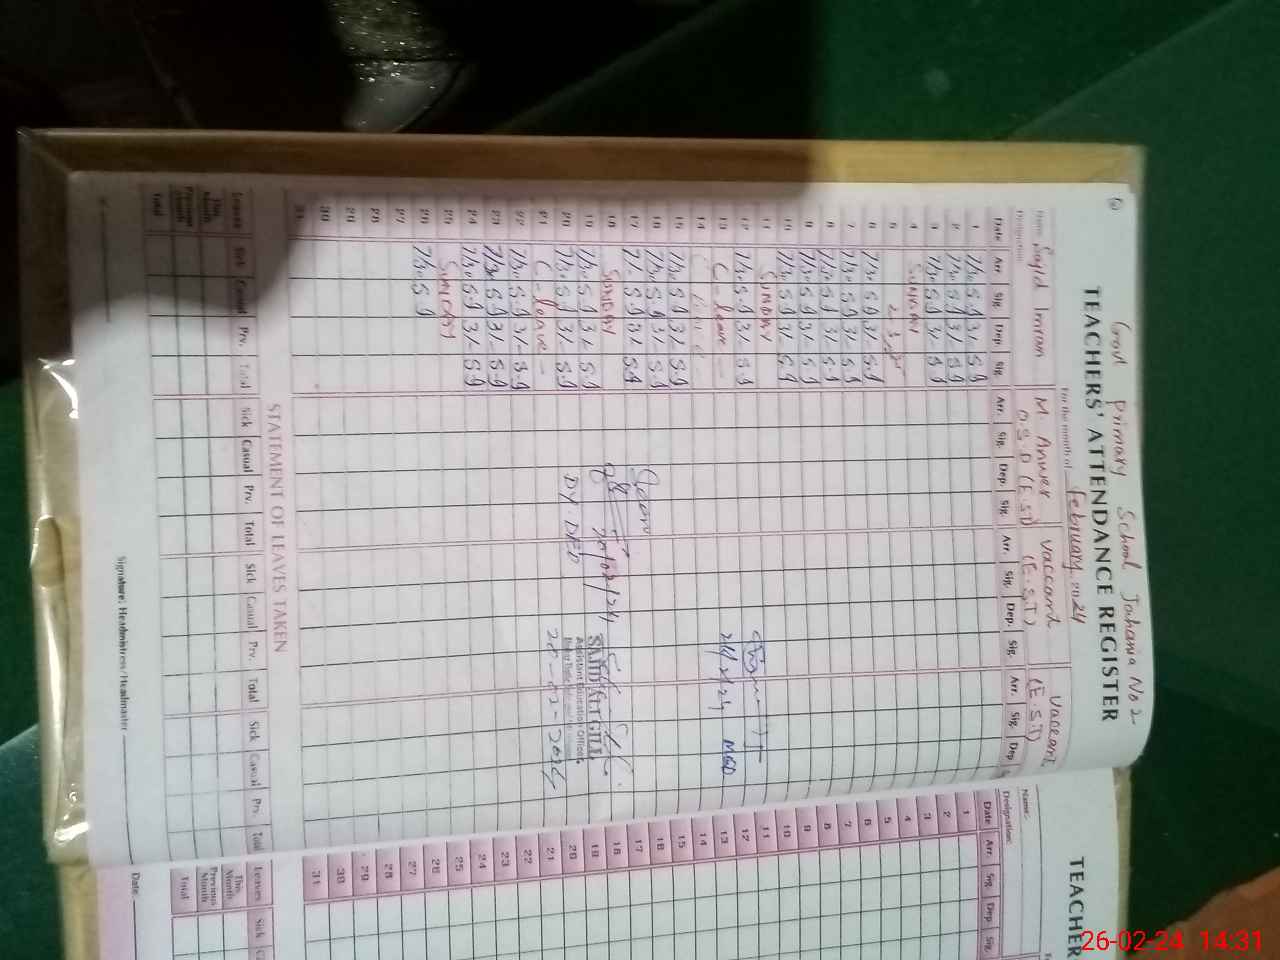 Govt Primary School Jahania No 2
TEACHERS' ATTENDANCE REGISTER
For the month of February 2024
Name Sajid Imran M. Anwer Vaccant Vaccant
Designation O.S.D (E.S.T) (E.S.T) (E.S.T)
Date Arr. Sig. Dep. Sig. Arr. Sig. Dep. Sig. Arr. Sig. Dep. Sig. Arr. Sig. Dep.
1 7/30 S.I 3/- S.I
2 7/30 S.I 3/- S.I
3 7/30 S.I 3/- S.I
4 SUNDAY
5
6 7/30 S.I 3/- S.I
7 7/30 S.I 3/- S.I
8 7/30 S.I 3/- S.I
9 7/30 S.I 3/- S.I
10 7/30 S.I 3/- S.I
11 SUNDAY
12 7/30 S.I 3/- S.I
13 C - leave -
14
15 7/30 S.I 3/- S.I
16 7/30 S.I 3/- S.I
17 7/- S.I 3/- S.I
18 SUNDAY
19 7/30 S.I 3/- S.I
20 7/30 S.I 3/- S.I
21 C - leave -
22 7/30 S.I 3/- S.I
23 7/30 S.I 3/- S.I
24 7/30 S.I 3/- S.I
25 SUNDAY
26 7/30 S.I
27
28
29
30
31
Seen
20/02/24
DY. DEO
SAJID ALI GILL
Assistant Education Officer
20-02-2024
21/2/24
STATEMENT OF LEAVES TAKEN
Leaves Sick Casual Prv. Total Sick Casual Prv. Total Sick Casual Prv. Total Sick Casual Prv. Total
This Month
Previous Month
Total
Signature: Headmistress/Headmaster
TEACHER
Name:
Designation:
Date Arr. Sig. Dep. Sig.
1
2
3
4
5
6
7
8
9
10
11
12
13
14
15
16
17
18
19
20
21
22
23
24
25
26
27
28
29
30
31
Leaves Sick
This Month
Previous Month
Total
Date:
26-02-24 14:31